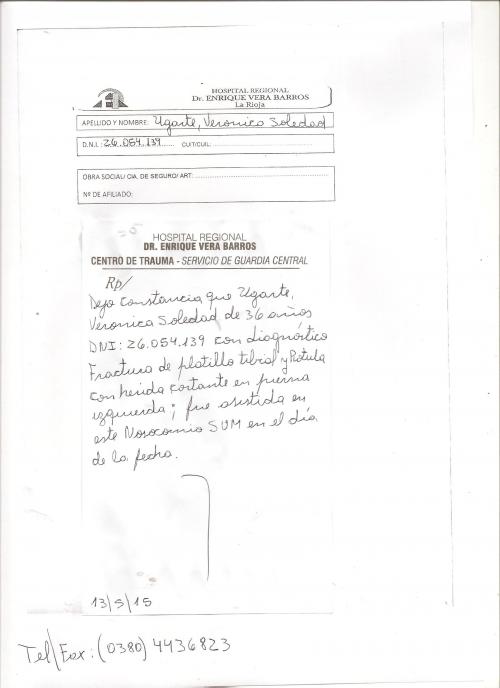 HOSPITAL REGIONAL
Dr. ENRIQUE VERA BARROS
La Rioja
APELLIDO Y NOMBRE: Ugarte, Veronica Soledad
D.N.I.: 26.054.139 CUIT/CUIL:
OBRA SOCIAL/ CIA. DE SEGURO/ ART:
Nº DE AFILIADO:
HOSPITAL REGIONAL
DR. ENRIQUE VERA BARROS
CENTRO DE TRAUMA - SERVICIO DE GUARDIA CENTRAL
Rp/
Dejo constancia que Ugarte,
Veronica Soledad de 36 años
DNI: 26.054.139 con diagnóstico
Fractura de platillo tibial y Rotula
con herida cortante en pierna
izquierda; fue asistida en
este Nosocomio SUM en el día
de la fecha.
13/5/15
Tel/Fax: (0380) 4436823